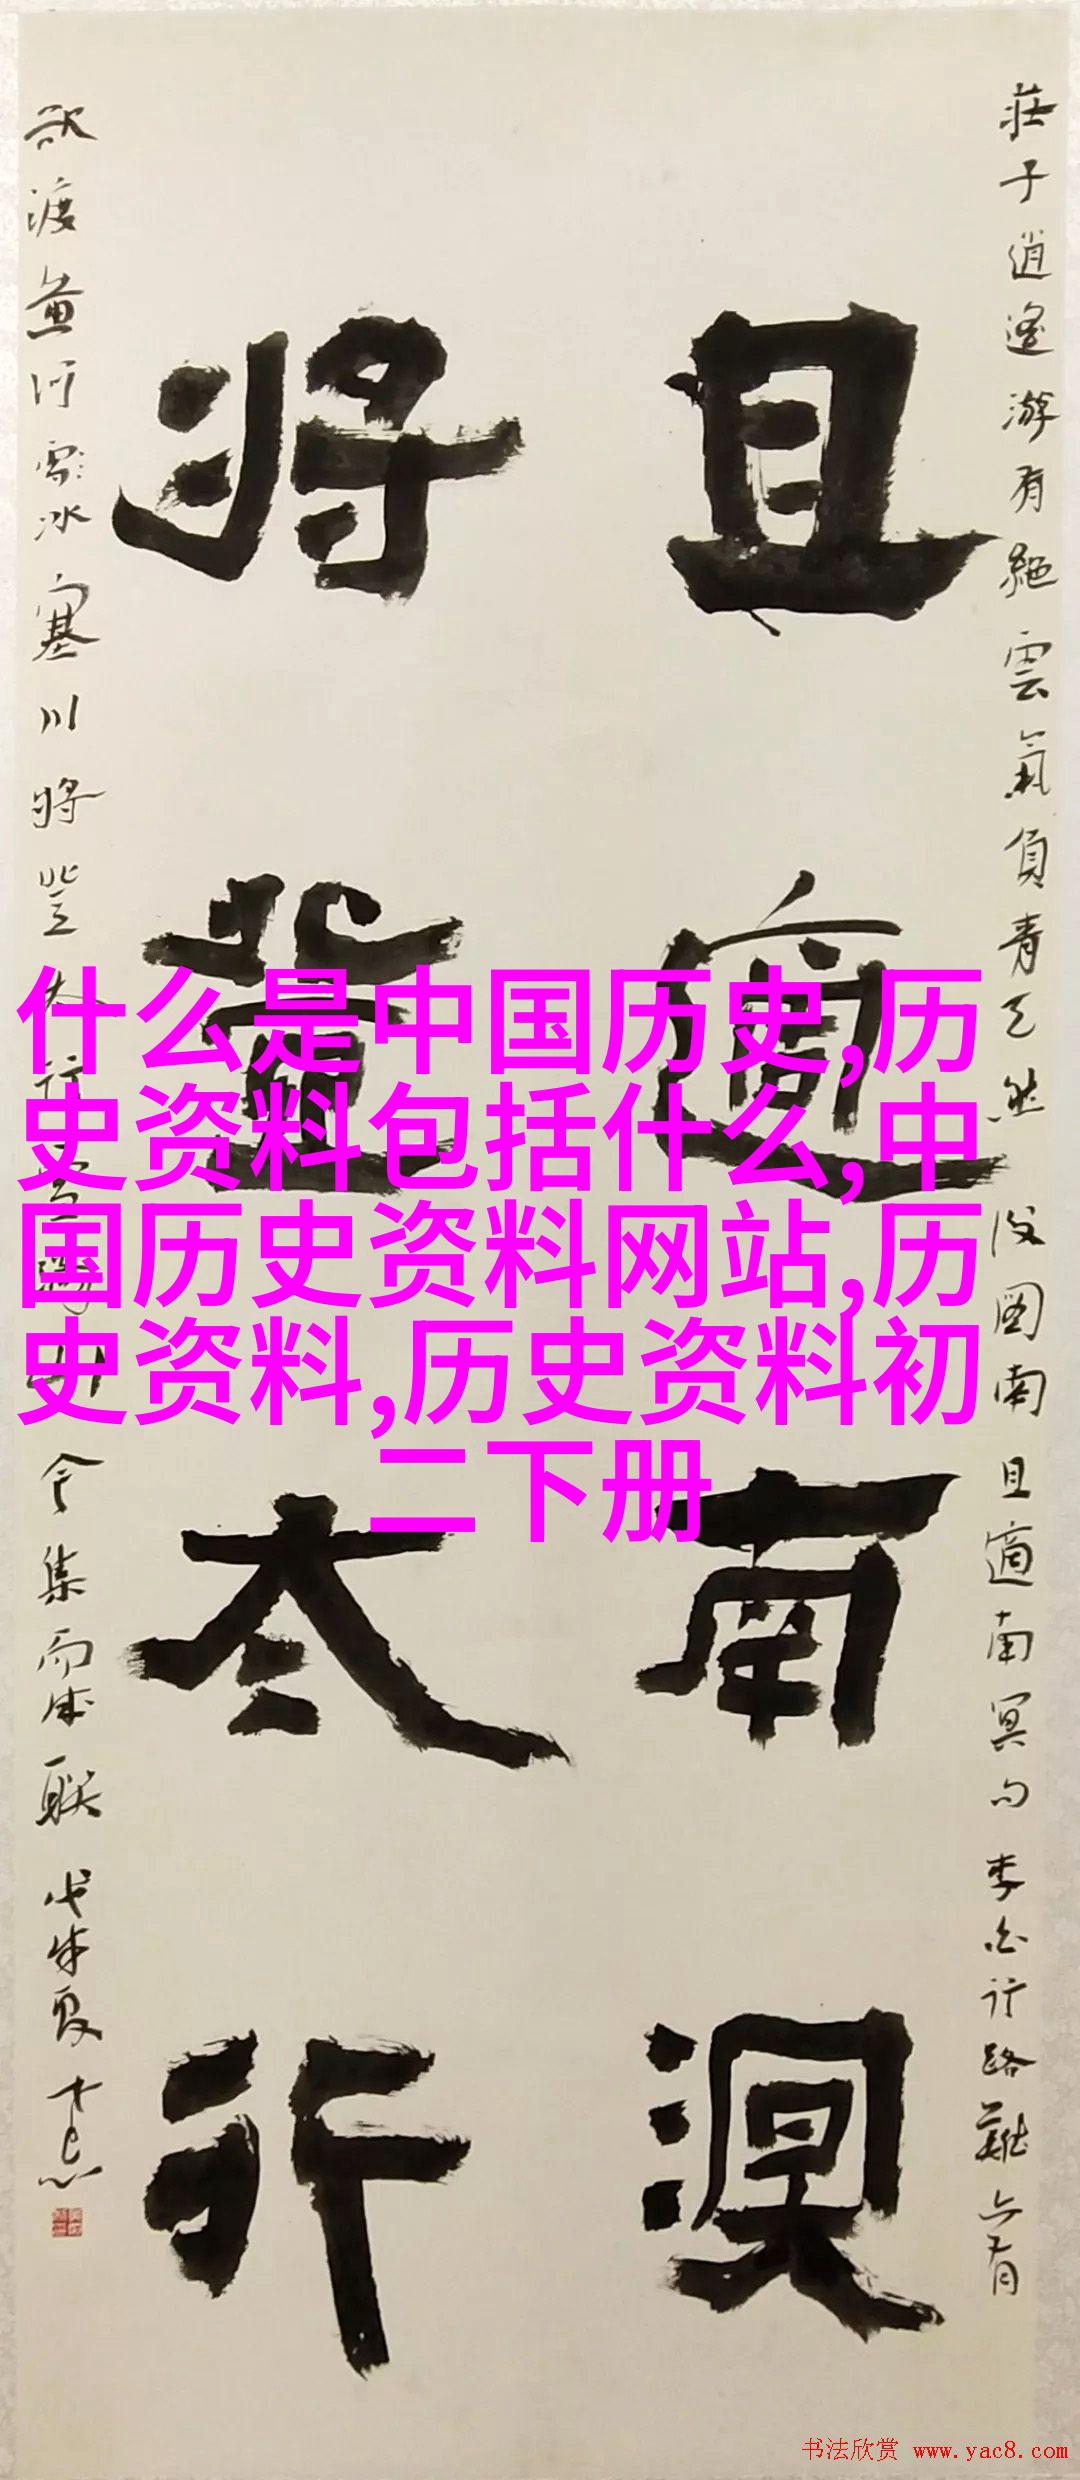 莊子逍遙游有絕雲氣負青天然後圖南且適南冥句李白行路難亦有
且適南溟
將登太行
欲渡黃河冰塞川將登太行雪
今集而成聯戊戌夏
什么是中国历史,历
史资料包括什么,中
国历史资料网站,历
史资料,历史资料初
二下册
书法欣赏 www.yac8.com